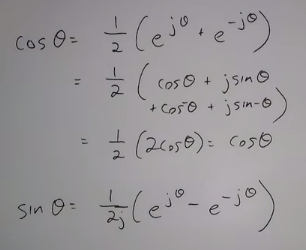 cos θ = 1/2 (e^{jθ} + e^{-jθ})
= 1/2 (cosθ + jsinθ
+cos-θ + jsin-θ)
= 1/2 (2cosθ) = cosθ
sin θ = 1/2j (e^{jθ} - e^{-jθ})